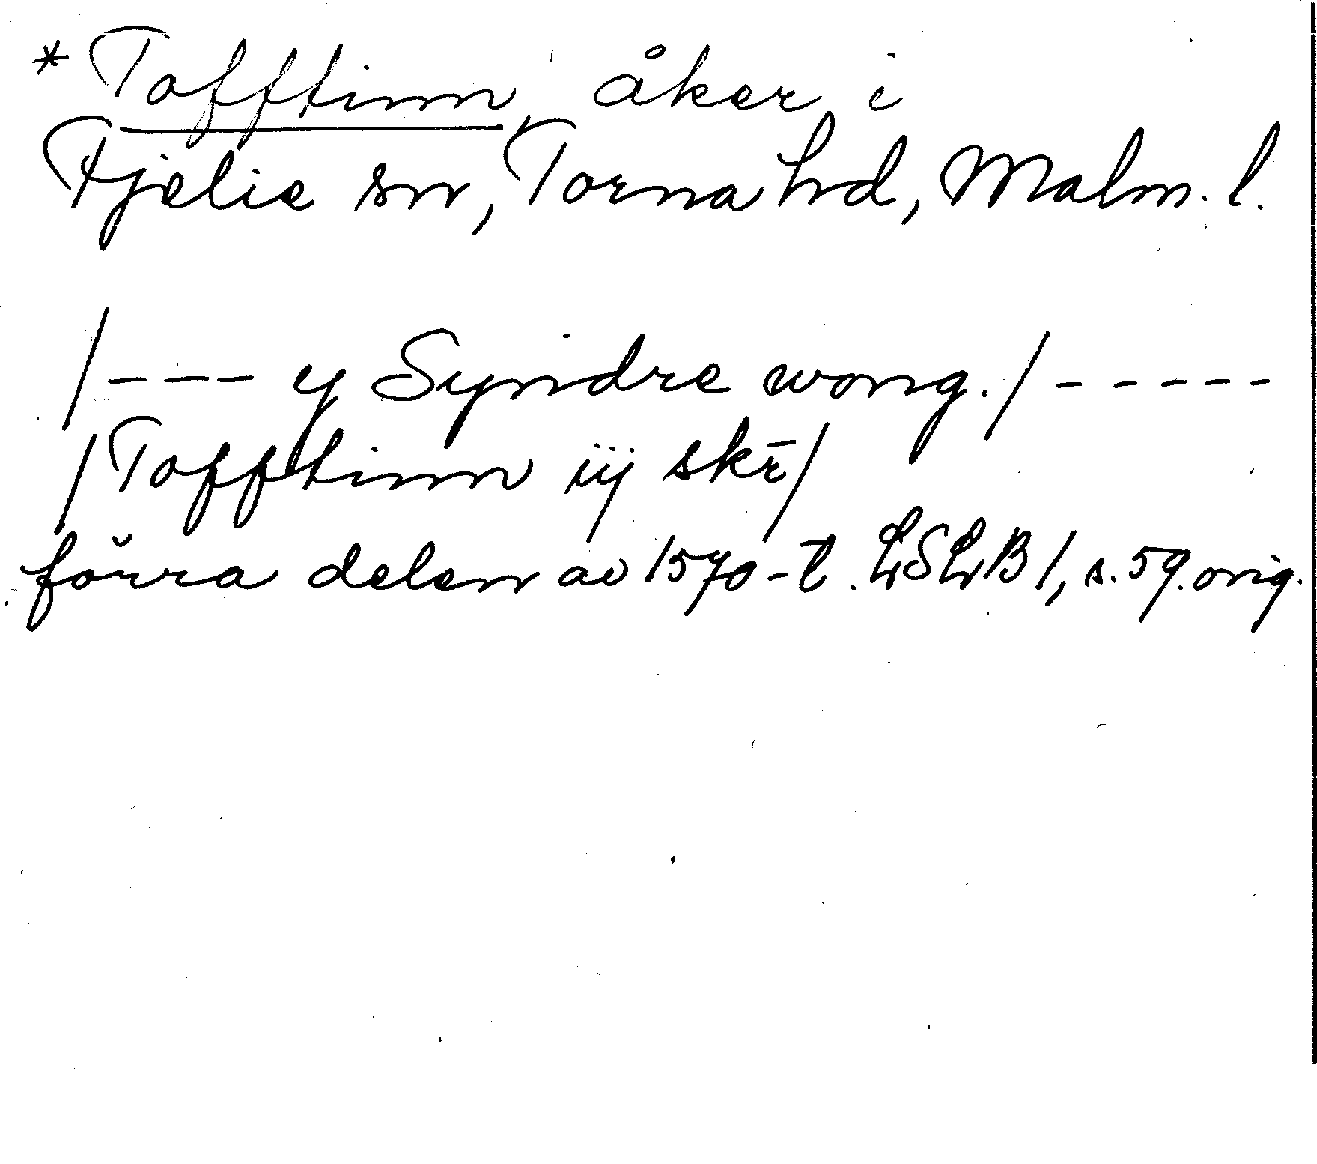 * Tofftinn, åker i
Fjelie sn, Torna hd, Malm. l.
/--- y Syndre wong./-----
/Tofftinn iij skr̄/
förra delen av 1570-t. LSLB 1, s. 59. orig.